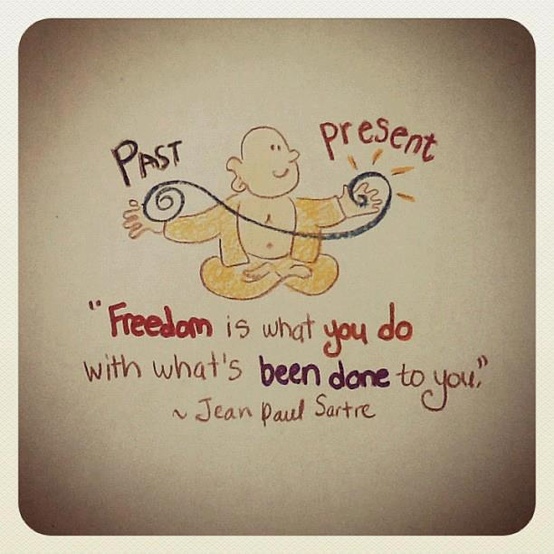 Past
Present
"Freedom is what you do
with what's been done to you."
~ Jean Paul Sartre